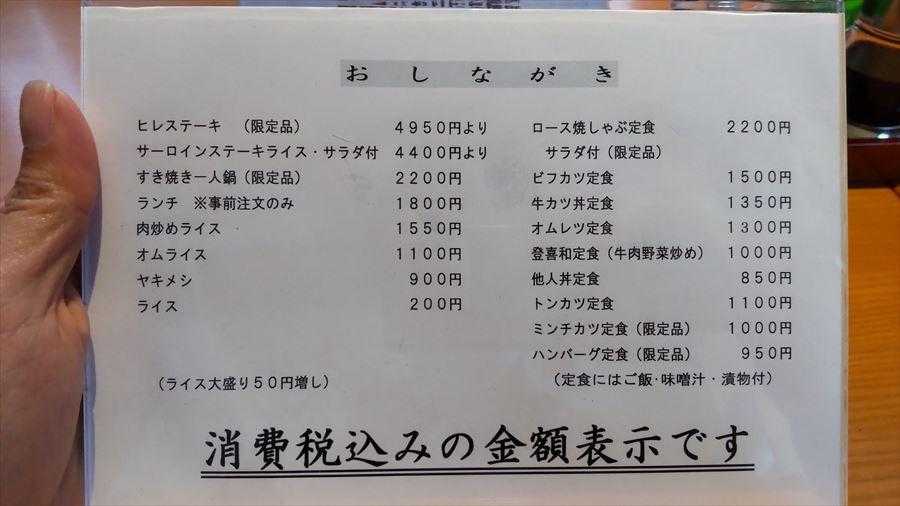 おしながき
ヒレステーキ （限定品） 4950円より
サーロインステーキライス・サラダ付 4400円より
すき焼き一人鍋（限定品） 2200円
ランチ ※事前注文のみ 1800円
肉炒めライス 1550円
オムライス 1100円
ヤキメシ 900円
ライス 200円
（ライス大盛り50円増し）
ロース焼しゃぶ定食 2200円
サラダ付（限定品）
ビフカツ定食 1500円
牛カツ丼定食 1350円
オムレツ定食 1300円
登喜和定食（牛肉野菜炒め） 1000円
他人丼定食 850円
トンカツ定食 1100円
ミンチカツ定食（限定品） 1000円
ハンバーグ定食（限定品） 950円
（定食にはご飯･味噌汁・漬物付）
消費税込みの金額表示です